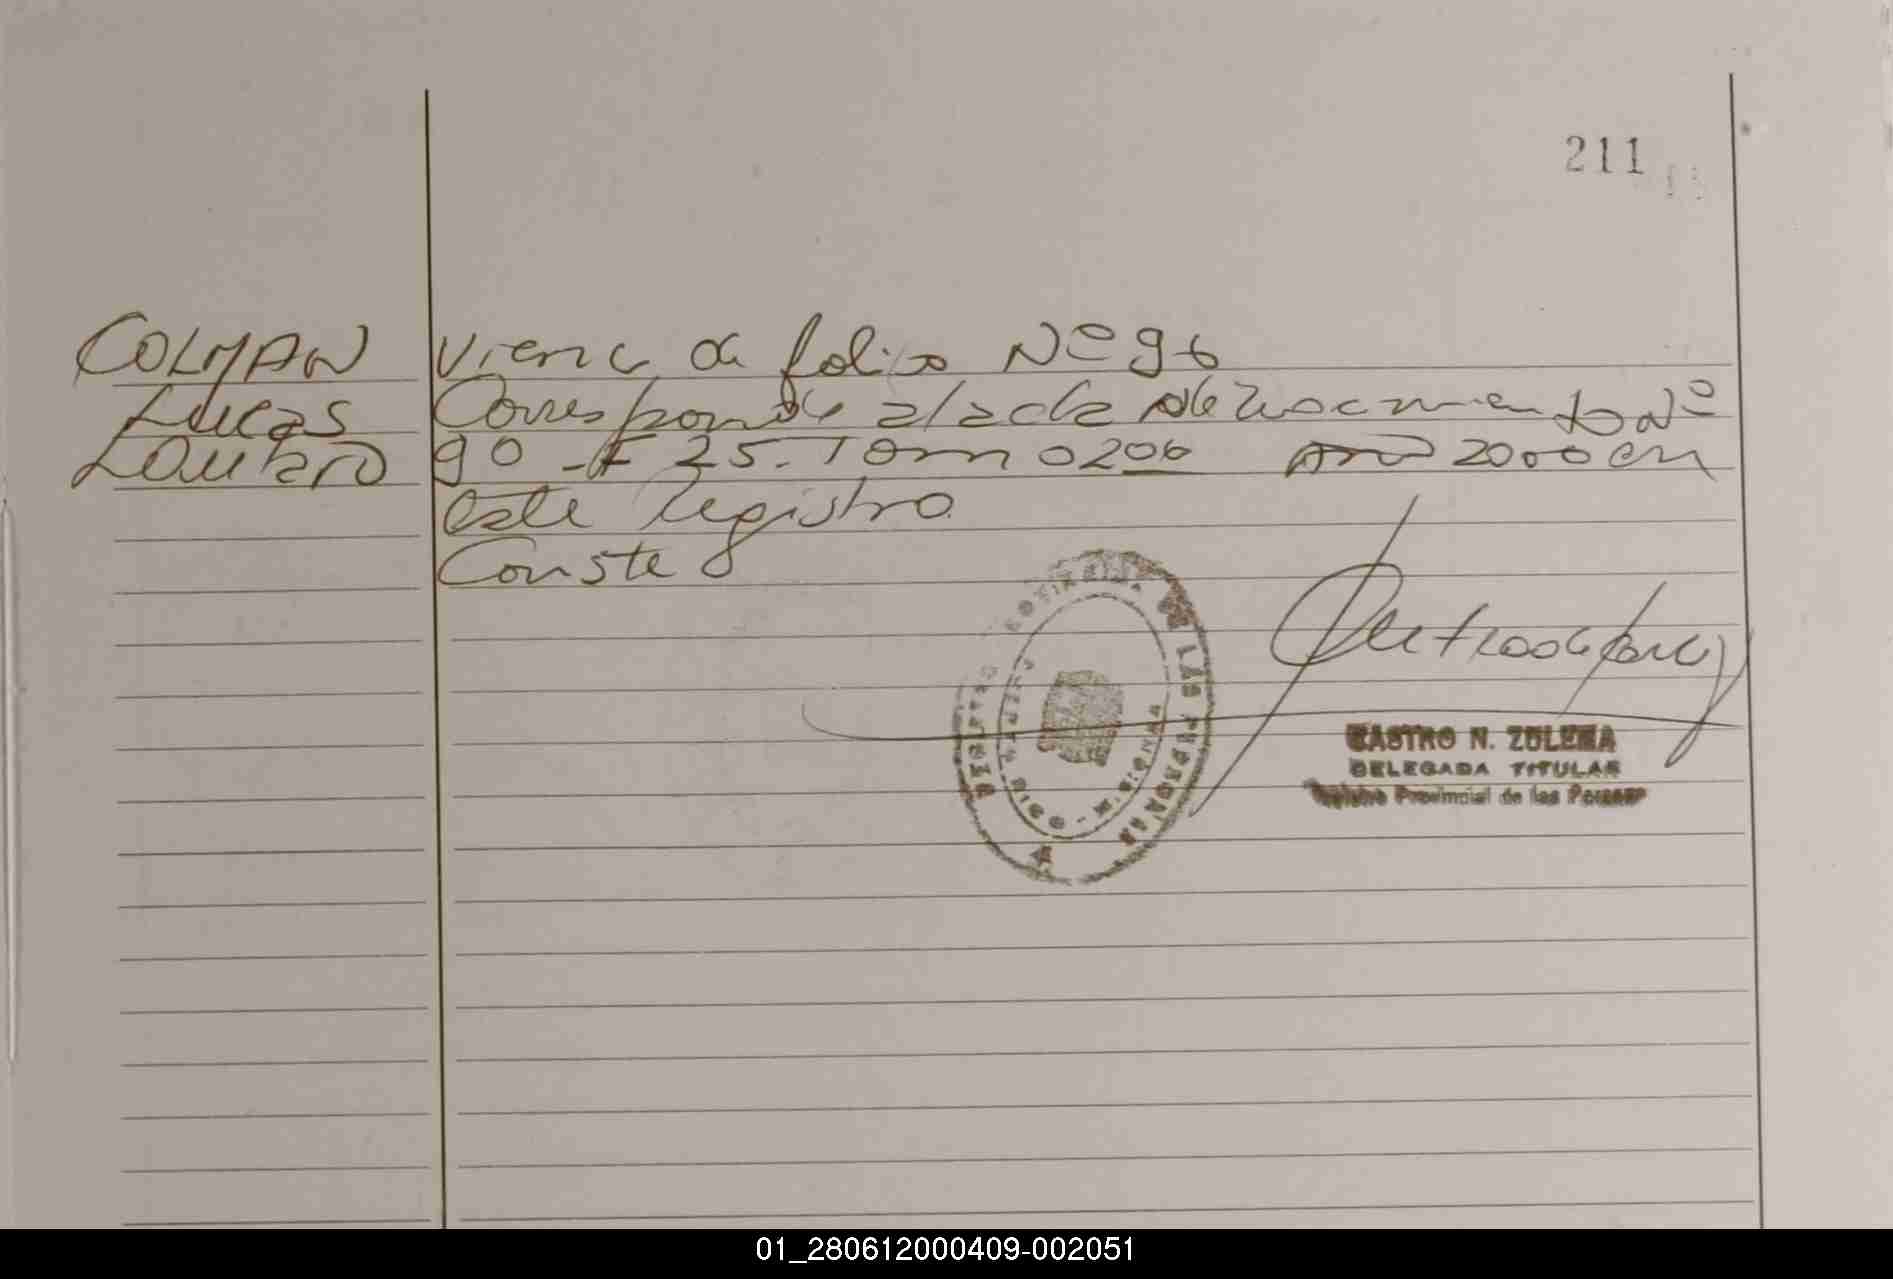 211
COLMAN
Lucas
Lautaro
Viene de folio Nº 96
Corresponde al acta de Nacimiento Nº
90 - F 25. Tomo 0206 Año 2000 en
este registro
Conste
DE LAS PERSONAS
CASTRO N. ZULEMA
DELEGADA TITULAR
Registro Provincial de las Personas
01_280612000409-002051